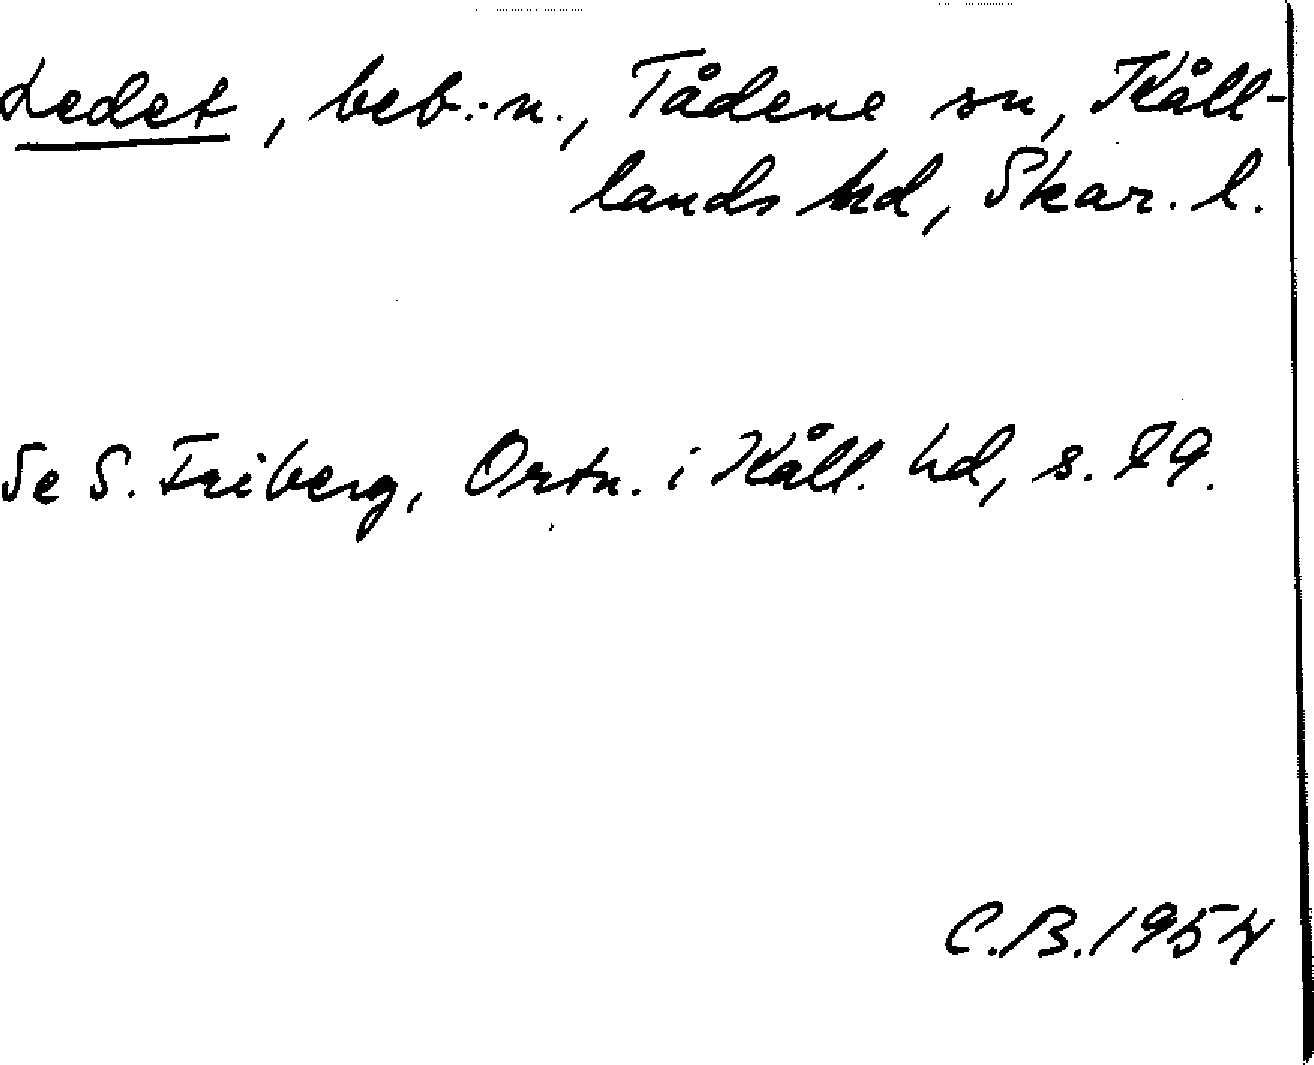 Ledet, beb.-n., Tådene sn, Kåll-
lands hd, Skar. l.
Se S. Friberg, Ortn. i Kåll. hd, s. 89.
C.B. 1954